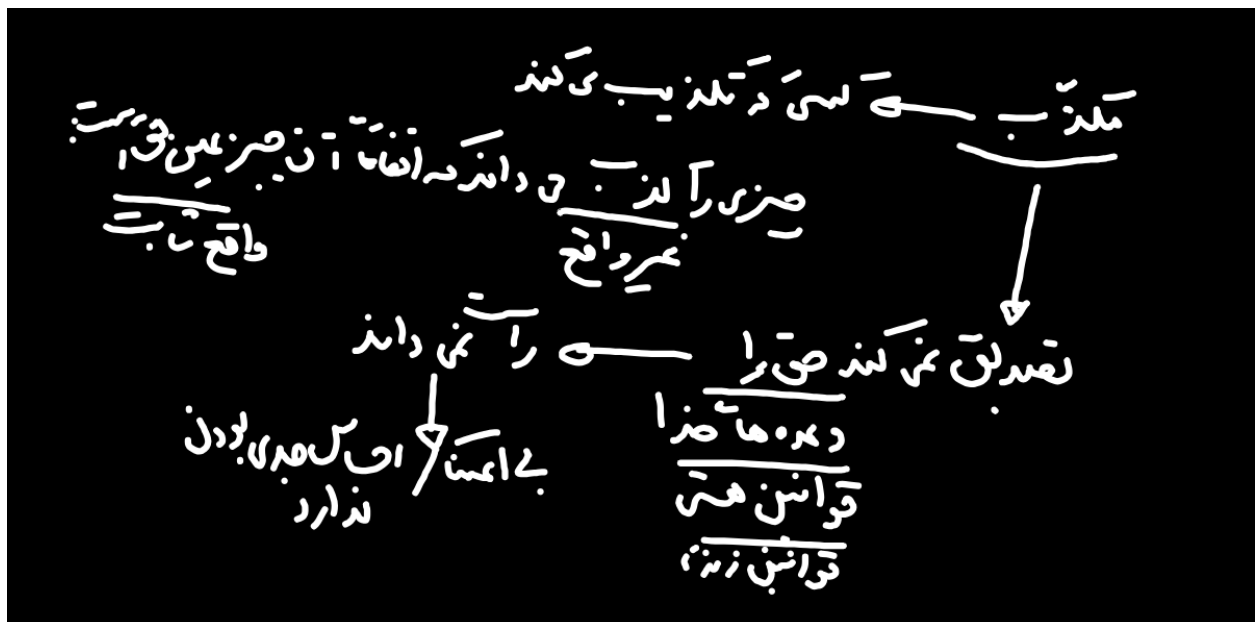 مکذّب
کسی که تکذیب می کند
چیزی را کذب می داند که اتفاقاً آن چیز عین حق است
غیر واقع
واقع ثابت
تصدیق نمی کند حق را
راست نمی داند
وعده های خدا
قوانین هستی
قوانین زندگی
بی اعتنا / احساس جدی بودن
ندارد